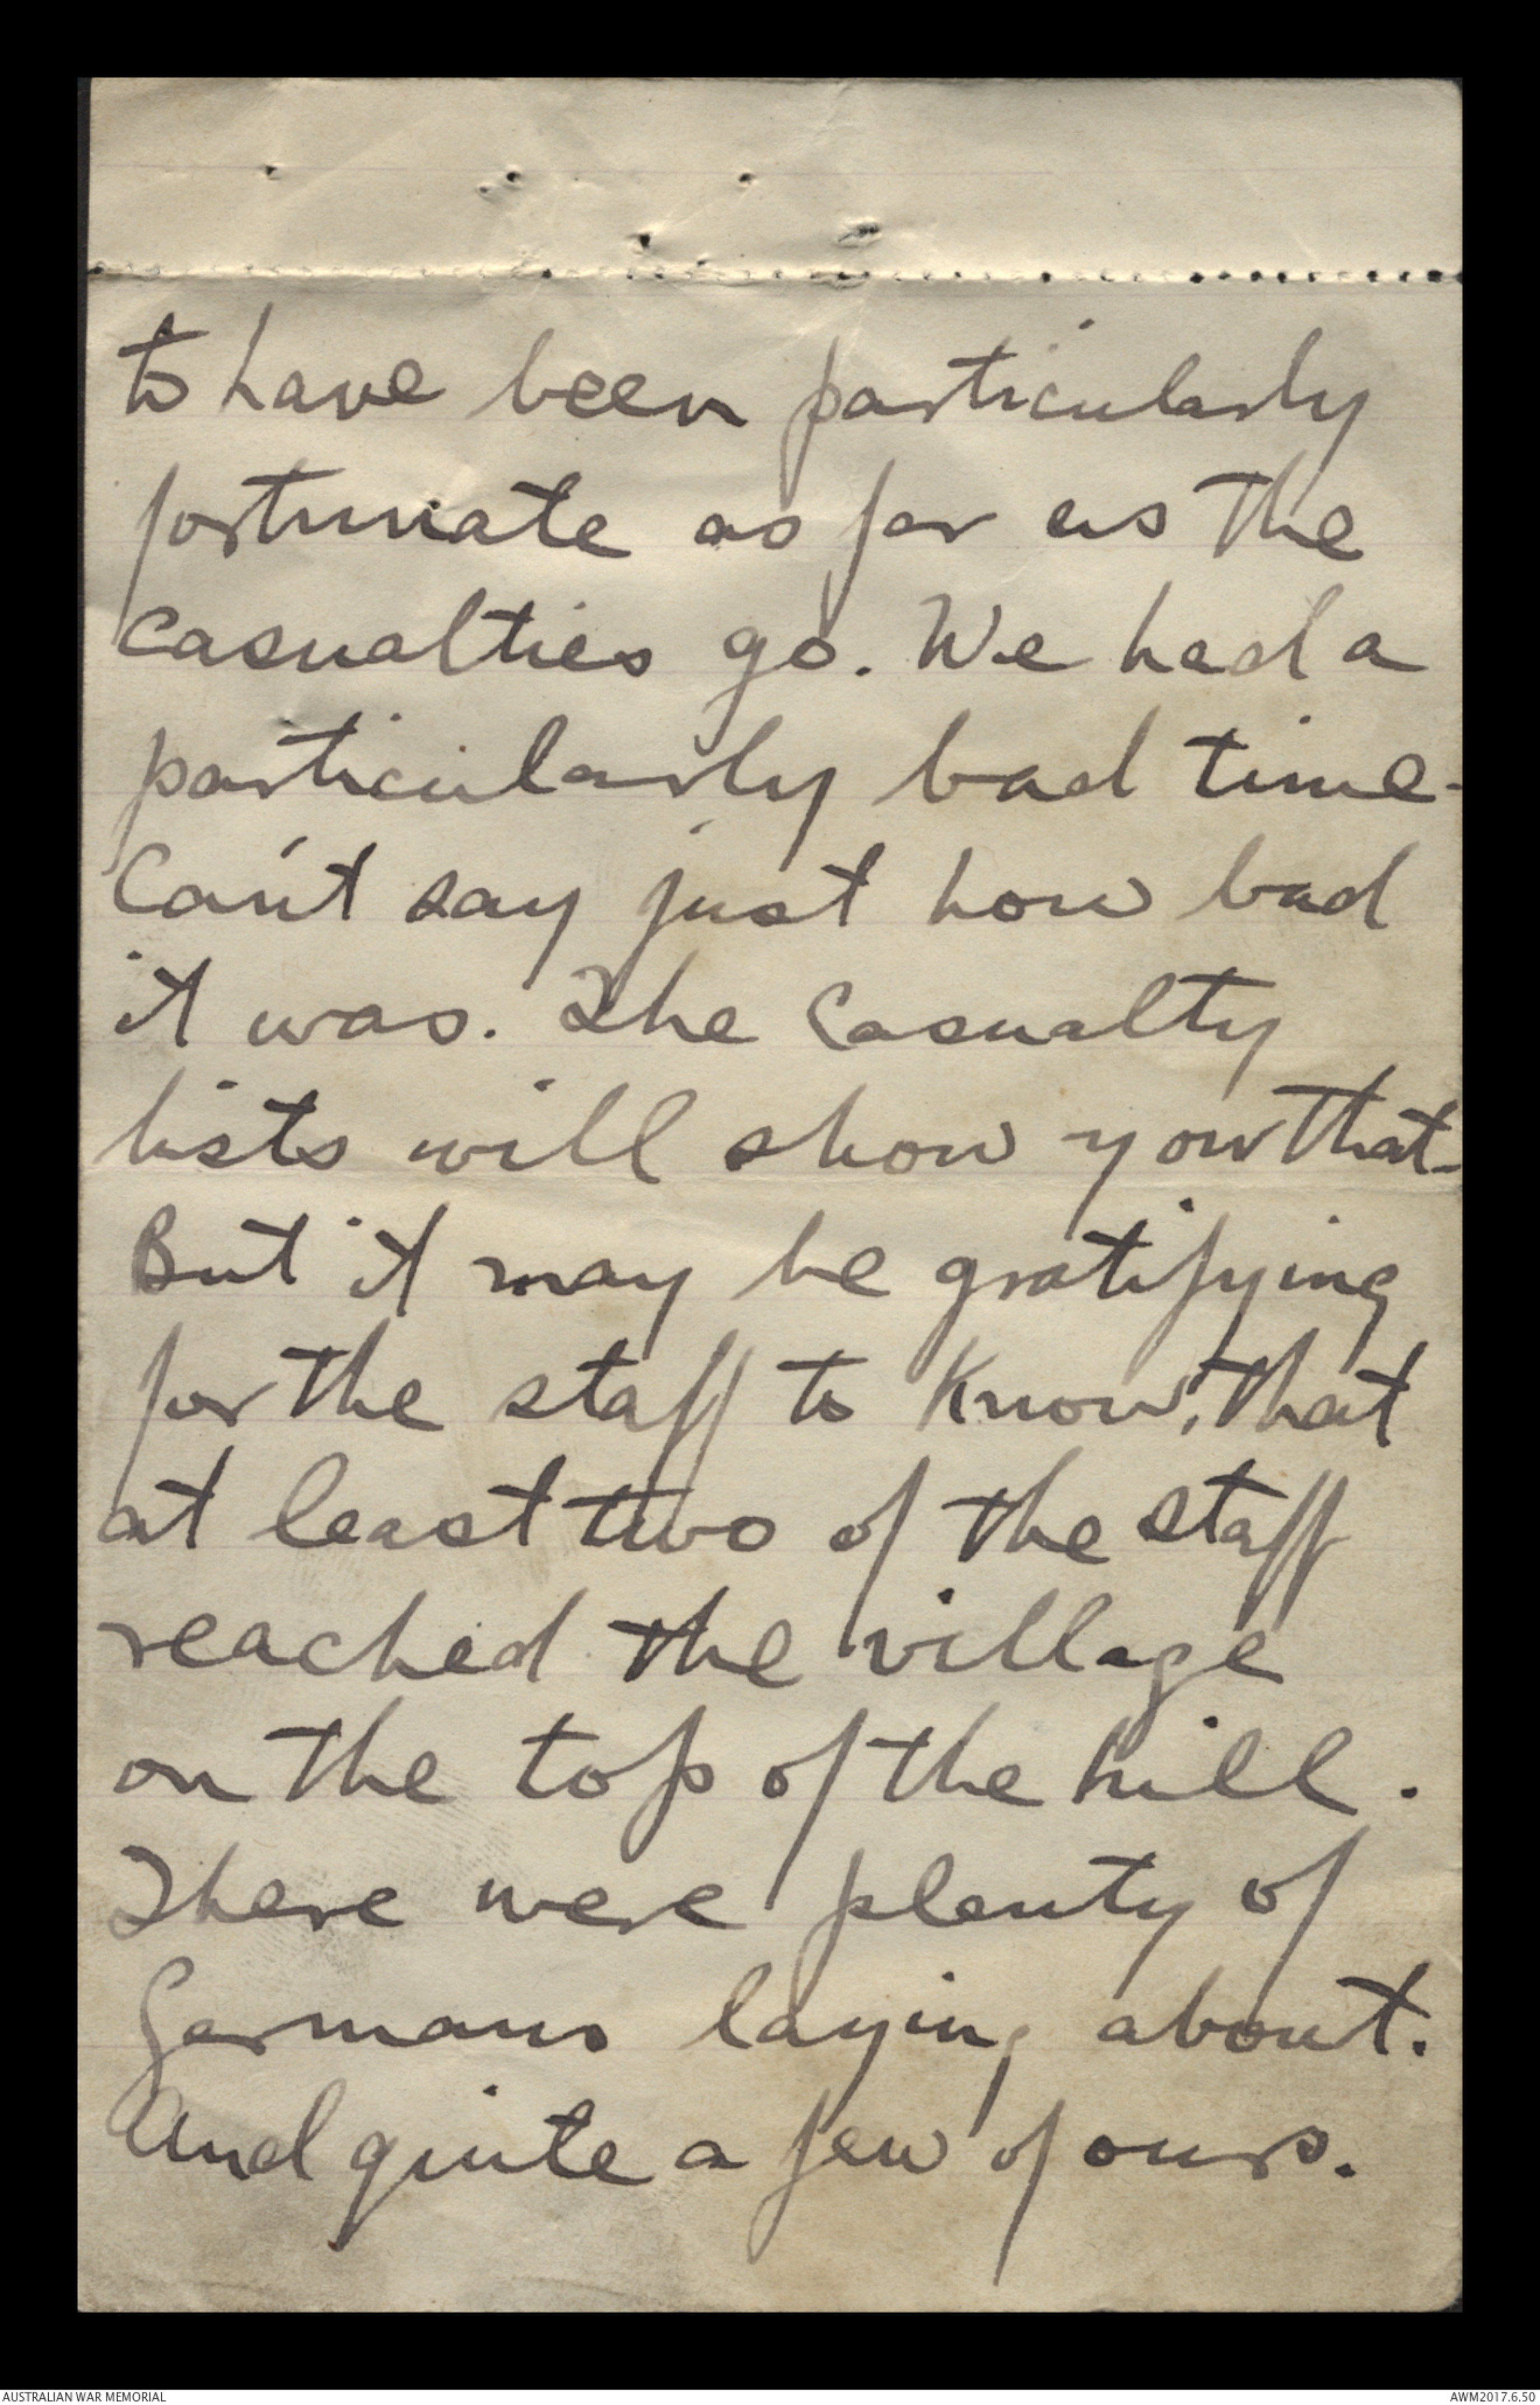 to have been particularly
fortunate as far as the
casualties go. We had a
particularly bad time -
Can't say just how bad
it was. The Casualty
lists will show you that -
But it may be gratifying
for the staff to know, that
at least two of the staff
reached the village
on the top of the hill.
There were plenty of
Germans laying about.
And quite a few of ours.
AUSTRALIAN WAR MEMORIAL
AWM2017.6.50